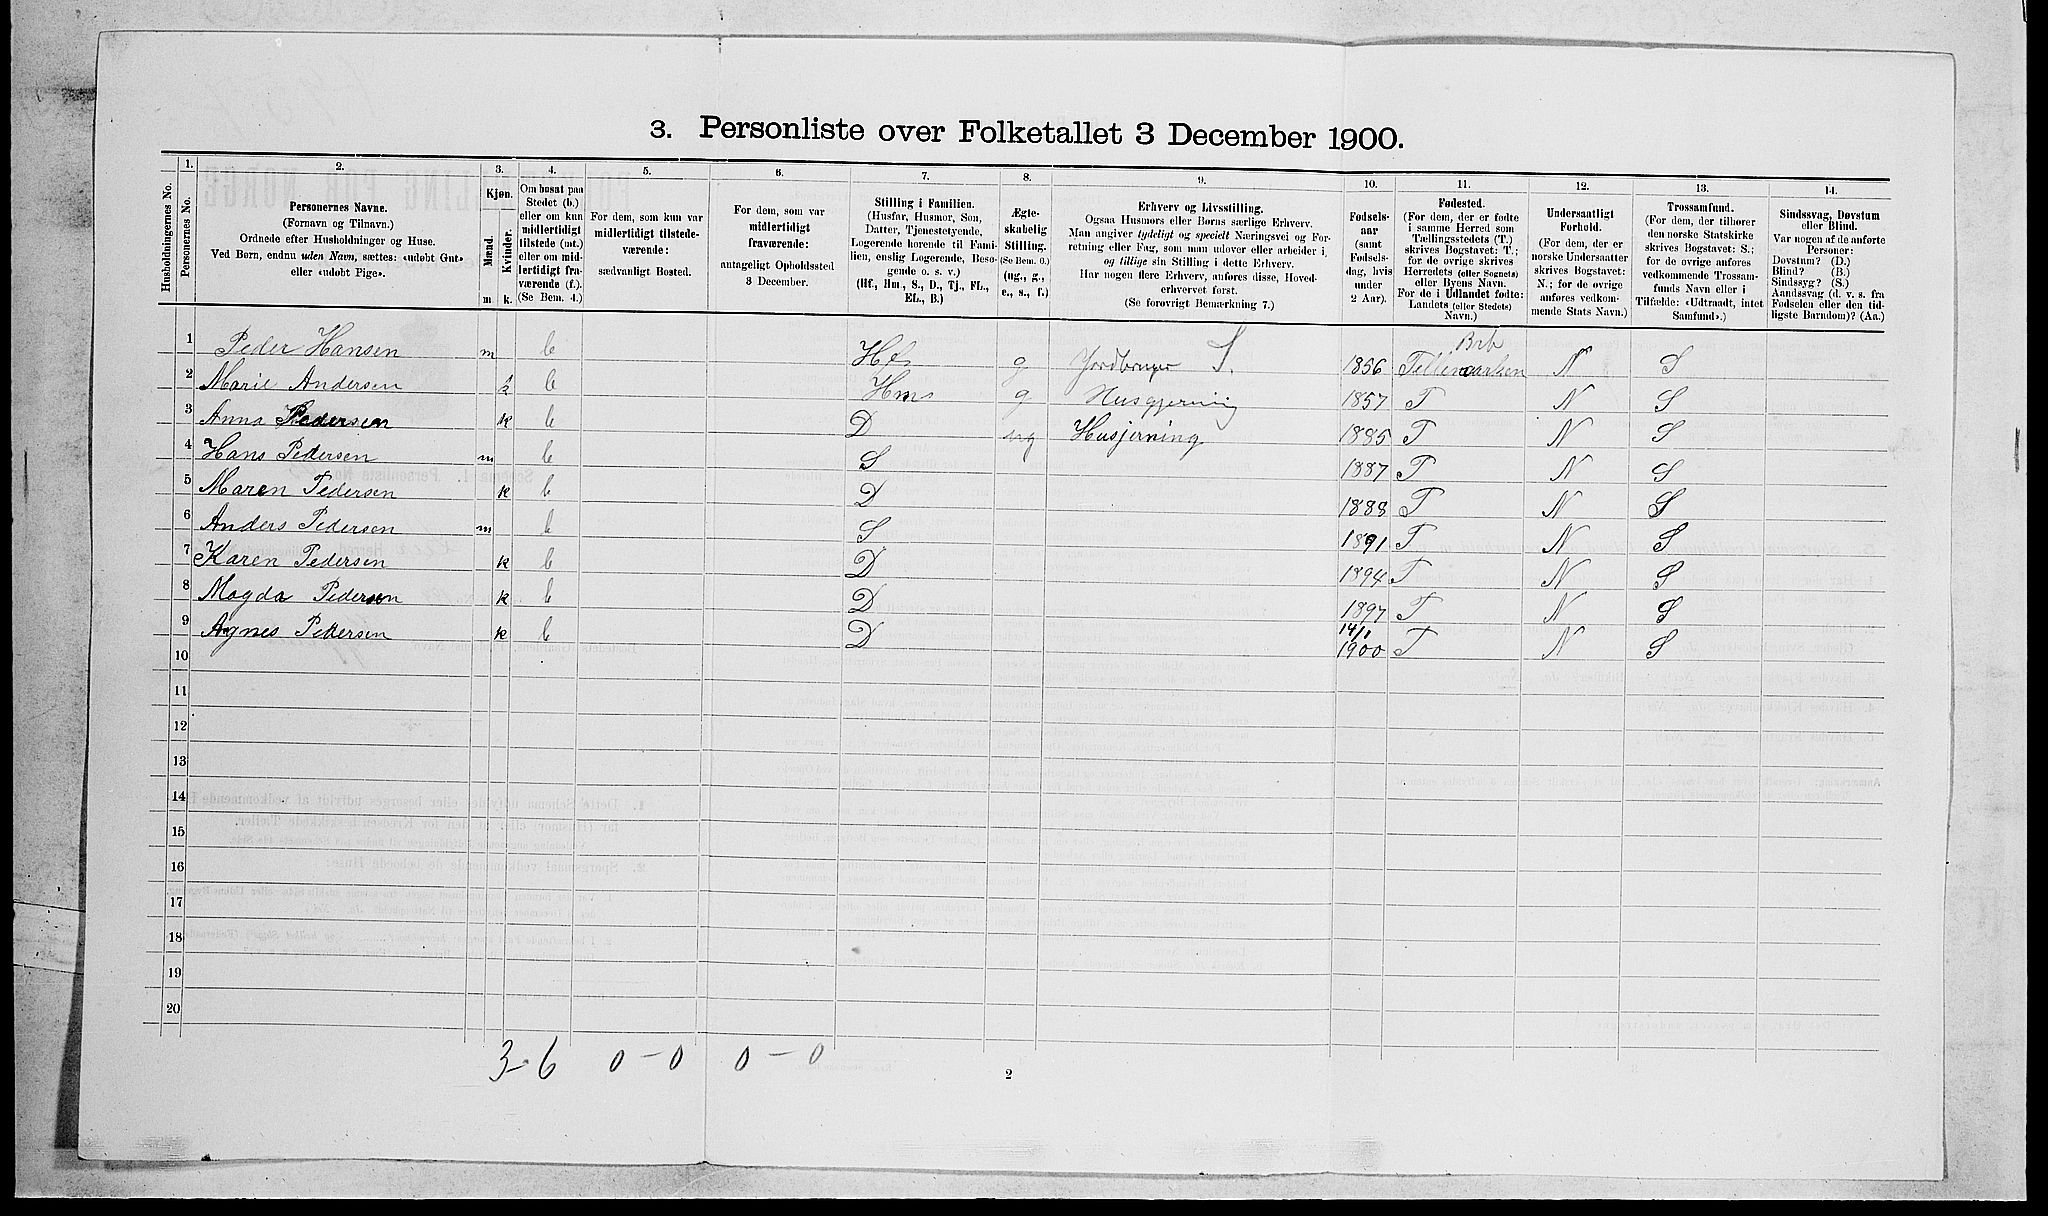 3. Personliste over Folketallet 3 December 1900.
Husholdningernes No.
1. Personernes No.
2. Personernes Navne.
(Fornavn og Tilnavn.)
Ordnede efter Husholdninger og Huse.
Ved Børn, endnu uden Navn, sættes: «udøbt Gut»
eller «udøbt Pige».
3. Kjøn.
Mænd.
Kvinder.
m k.
4. Om bosat paa
Stedet (b.)
eller om kun
midlertidigt
tilstede (mt.)
eller om mid-
lertidigt fra-
værende (f.).
(Se Bem. 4.)
5. For dem, som kun var
midlertidigt tilstede-
værende:
sædvanligt Bosted.
6. For dem, som var
midlertidigt
fraværende:
antageligt Opholdssted
3 December.
7. Stilling i Familien.
(Husfar, Husmor, Søn,
Datter, Tjenestetyende,
Logerende hørende til Fami-
lien, enslig Logerende, Besø-
gende o. s. v.)
(Hf., Hm., S., D., Tj., FL.,
EL., B.)
8. Ægte-
skabelig
Stilling.
(Se Bem. 6.)
(ug., g.,
e., s., f.)
9. Erhverv og Livsstilling.
Ogsaa Husmors eller Børns særlige Erhverv.
Man angiver tydeligt og specielt Næringsvei og For-
retning eller Fag, som man udøver eller arbeider i,
og tillige sin Stilling i dette Erhverv.
Har nogen flere Erhverv, anføres disse, Hoved-
erhvervet først.
(Se forøvrigt Bemærkning 7.)
10. Fødsels-
aar
(samt
Fødsels-
dag, hvis
under
2 Aar).
11. Fødested.
(For dem, der er fødte
i samme Herred som
Tællingsstedets (T.)
skrives Bogstavet: T.;
for de øvrige skrives
Herredets (eller Sognets)
eller Byens Navn.
For de i Udlandet fødte:
Landets (eller Stedets)
Navn.)
12. Undersaatligt
Forhold.
(For dem, der er
norske Undersaatter
skrives Bogstavet:
N.; for de øvrige
anføres vedkom-
mende Stats Navn.)
13. Trossamfund.
(For dem, der tilhører
den norske Statskirke
skrives Bogstavet: S.;
for de øvrige anføres
vedkommende Trossam-
funds Navn eller i
Tilfælde: «Udtraadt, intet
Samfund».)
14. Sindssvag, Døvstum
eller Blind.
Var nogen af de anførte
Personer:
Døvstum? (D.)
Blind? (B.)
Sindssyg? (S.)
Aandssvag (d. v. s. fra
Fødselen eller den tid-
ligste Barndom)? (Aa.)
1 Peder Hansen m b Hf g Jordbruger S. 1856 N S
2 Marie Andersen k b Hm g Husgjerning 1857 T N S
3 Anna Pedersen k b D ug Husjerning 1885 T N S
4 Hans Pedersen m b S 1887 T N S
5 Maren Pedersen k b D 1888 T N S
6 Anders Pedersen m b S 1891 T N S
7 Karen Pedersen k b D 1894 T N S
8 Magda Pedersen k b D 1897 T N S
9 Agnes Pedersen k b D 14/1 1900 T N S
10
11
12
13
14
15
16
17
18
19
20
3-6 0-0 0-0
2